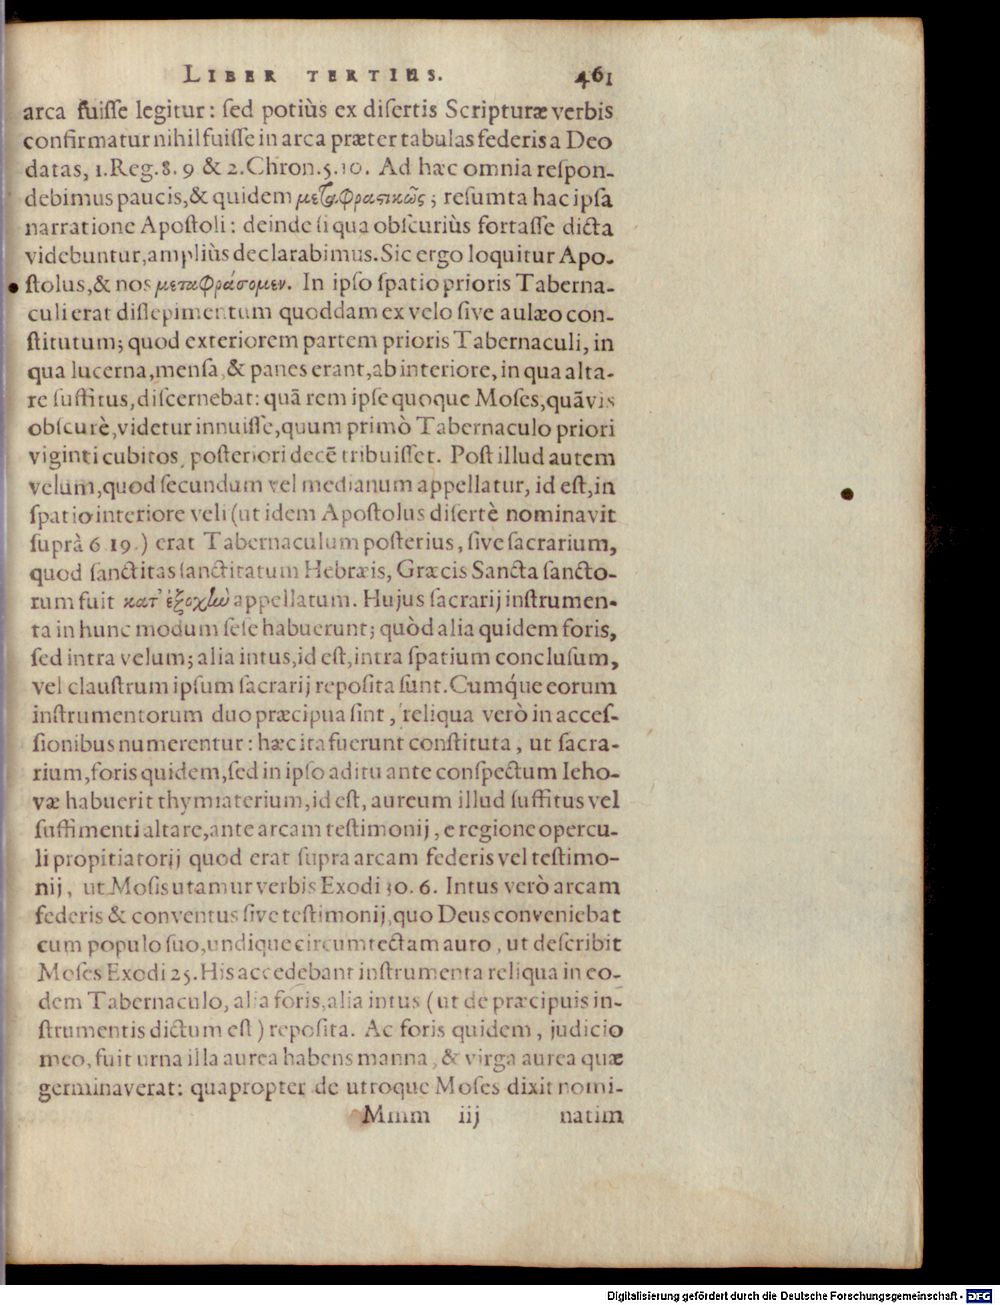 LIBER TERTIUS. 461
arca fuisse legitur: sed potiùs ex disertis Scripturæ verbis
confirmatur nihil fuisse in arca præter tabulas federis a Deo
datas, 1.Reg.8. 9 & 2.Chron.5.10. Ad hæc omnia respon-
debimus paucis,& quidem μεταφραστικῶς; resumta hac ipsa
narratione Apostoli: deinde si qua obscuriùs fortasse dicta
videbuntur,ampliùs declarabimus.Sic ergo loquitur Apo-
stolus,& nos μεταφράσομεν. In ipso spatio prioris Taberna-
culi erat dissepimentum quoddam ex velo sive aulæo con-
stitutum; quod exteriorem partem prioris Tabernaculi, in
qua lucerna,mensa,& panes erant,ab interiore,in qua alta-
re suffitus,discernebat: quã rem ipse quoque Moses,quãvis
obscurè,videtur innuisse,quum primò Tabernaculo priori
viginti cubitos, posteriori decẽ tribuisset. Post illud autem
velum,quod secundum vel medianum appellatur, id est,in
spatio interiore veli (ut idem Apostolus disertè nominavit
suprà 6 19.) erat Tabernaculum posterius, sive sacrarium,
quod sanctitas sanctitatum Hebræis, Græcis Sancta sancto-
rum fuit κατ' ἐξοχὴν appellatum. Hujus sacrarij instrumen-
ta in hunc modum sese habuerunt; quòd alia quidem foris,
sed intra velum; alia intus,id est,intra spatium conclusum,
vel claustrum ipsum sacrarij reposita sunt.Cumq́ue eorum
instrumentorum duo præcipua sint, reliqua verò in acces-
sionibus numerentur: hæc ita fuerunt constituta, ut sacra-
rium,foris quidem,sed in ipso aditu ante conspectum Ieho-
væ habuerit thymiaterium,id est, aureum illud suffitus vel
suffimenti altare,ante arcam testimonij, e regione opercu-
li propitiatorij quod erat supra arcam federis vel testimo-
nij, ut Mosis utamur verbis Exodi 30. 6. Intus verò arcam
federis & conventus sive testimonij,quo Deus conveniebat
cum populo suo,undique circumtectam auro, ut describit
Moses Exodi 25.His accedebant instrumenta reliqua in eo-
dem Tabernaculo, alia foris,alia intus (ut de præcipuis in-
strumentis dictum est) reposita. Ac foris quidem, judicio
meo, fuit urna illa aurea habens manna, & virga aurea quæ
germinaverat: quapropter de utroque Moses dixit nomi-
Mmm iij natim
Digitalisierung gefördert durch die Deutsche Forschungsgemeinschaft - DFG